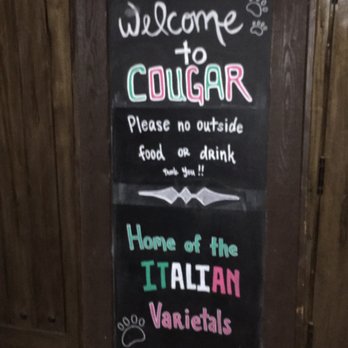 Welcome
to
COUGAR
Please no outside
food or drink
Thank you!!
Home of the
ITALIAN
Varietals